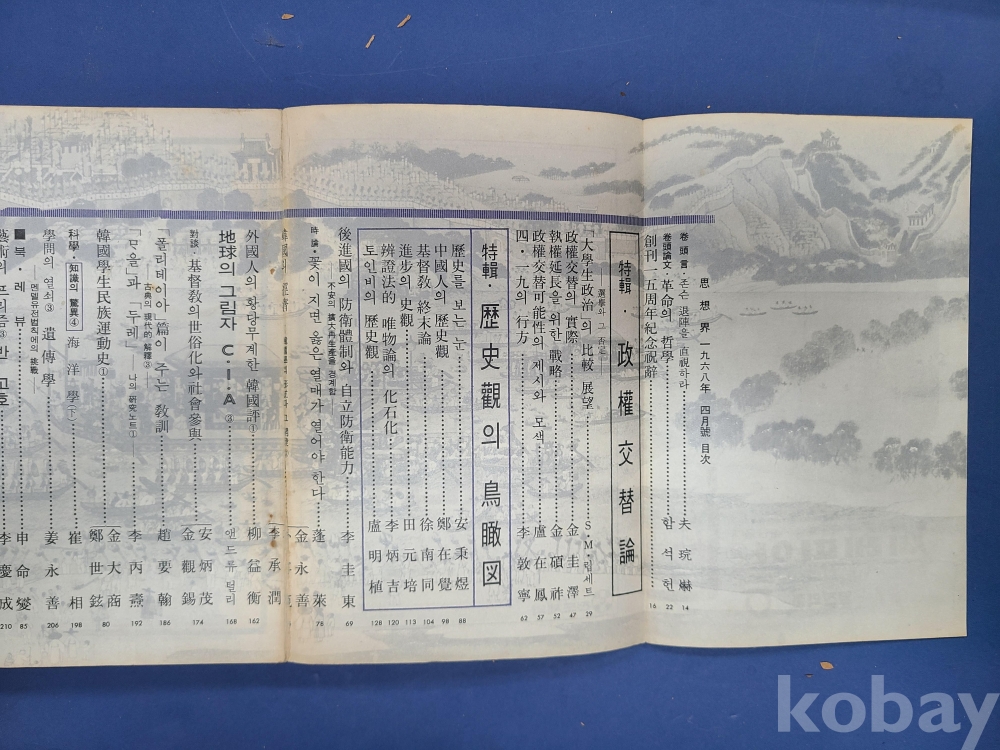 思想界 一九六八年 四月號 目次
卷頭言·존슨 退陣을 直視하라 夫琓爀 14
卷頭論文·革命의 哲學 함석헌 22
創刊一五周年紀念祝辭 16
特輯·政權交替論
「大學生政治」의 比較 展望 S·M·립세트 29
政權交替의 實際 金圭澤 47
執權延長을 위한 戰略 金碩祚 52
政權交替可能性의 제시와 모색 盧在鳳 57
四·一九의 行方 李敦寧 62
特輯·歷史觀의 鳥瞰図
歷史를 보는 눈 安秉煜 88
中國人의 歷史觀 鄭在覺 98
基督敎 終末論 徐南同 104
進步의 史觀 田元培 113
辨證法的 唯物論의 化石化 李炳吉 120
토인비의 歷史觀 盧明植 128
後進國의 防衛體制와 自立防衛能力 李圭東 69
—不安의 擴大再生產을 경계함—
時論·꽃이 지면 옳은 열매가 열어야 한다 蓬萊 78
金永善
李承潤
外國人의 황당무계한 韓國評① 柳益衡 162
地球의 그림자 C·I·A③ 앤드류 털리 168
對談·基督敎의 世俗化와 社會參與 安炳茂 金觀錫 174
「폴리테이아」篇이 주는 敎訓 趙要翰 186
—古典의 現代的 解釋③—
「막을」과 「두레」 —나의 硏究노트①— 李丙燾 192
韓國學生民族運動史① 金大商 鄭世鉉 80
科學·知識의 驚異④ 海洋學(下) 崔相 198
學問의 열쇠③ 遺傳學 姜永善 206
—멘델유전법칙에의 挑戰—
■북·레뷰 申命燮 85
藝術의 프리즘③ 반 고호 李慶成 210
kobay